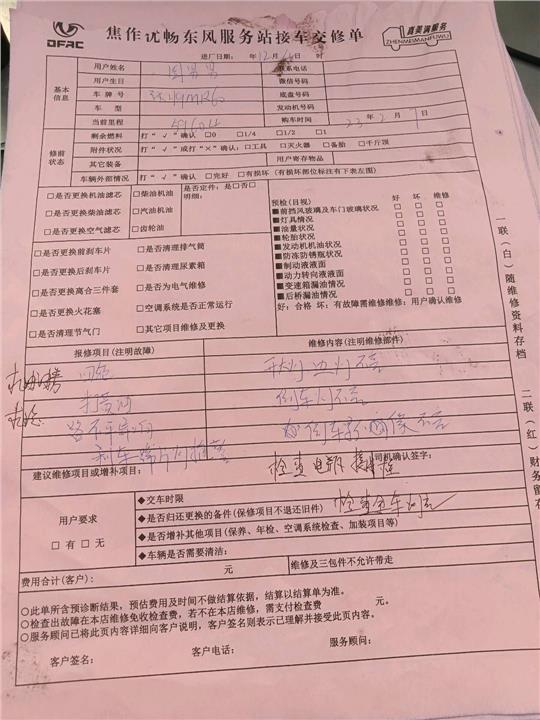 DFAC
焦作优畅东风服务站接车交修单
真美满服务
ZHENMEIMANFUWU
进厂日期: 年 12 月 日 时
基本信息
用户姓名
联系电话
用户生日
微信号码
车 牌 号
底盘号码
车 型
发动机号码
当前里程
购车时间 23 年 2 月 7 日
修前状态
剩余燃料 打“√”确认 □0 □1/4 □1/2 □1
附件状况 打“√”或打“×”确认:□工具 □灭火器 □备胎 □千斤顶
其它装备 用户寄存物品
车辆外部情况 打“√”确认 □完好 □有损坏(有损坏部位标注有下表左图)
□是否更换机油滤芯 □柴油机油 是否定件: 是□否□
明细:
□是否更换柴油滤芯 □汽油机油
□是否更换空气滤芯 □齿轮油
□是否更换前刹车片 □是否清理排气筒
□是否更换后刹车片 □是否清理尿素箱
□是否更换离合三件套 □是否为电气维修
□是否更换火花塞 □空调系统是否正常运行
□是否清理节气门 □其它项目维修及更换
预检(目视) 好 坏 维修
■前挡风玻璃及车门玻璃状况 □ □ □
■灯具情况 □ □ □
■油量状况 □ □ □
■轮胎状况 □ □ □
■发动机机油状况 □ □ □
■防冻防锈瓶状况 □ □ □
■制动液液面 □ □ □
■动力转向液液面 □ □ □
■变速箱漏油情况 □ □ □
■后桥漏油情况 □ □ □
好:合格 坏:有故障需维修维修:用户确认维修
报修项目(注明故障) 维修内容(注明维修部件)
打黄油
倒车灯不亮
建议维修项目或增补项目: 检查电瓶 司机确认签字:
用户要求
□有 □无
◆交车时限
◆是否归还更换的备件(保修项目不退还旧件)
◆是否增补其他项目(保养、年检、空调系统检查、加装项目等)
◆车辆是否需要清洁:
费用合计(客户): 元 维修及三包件不允许带走
○此单所含预诊断结果,预估费用及时间不做结算依据,结算以结算单为准。
○检查出故障在本店维修免收检查费,若不在本店维修,需支付检查费 元。
○服务顾问已将此页内容详细向客户说明,客户签名则表示已理解并接受此页内容。
客户签名: 客户电话: 服务顾问:
一联(白)随维修资料存档
二联(红)财务留存